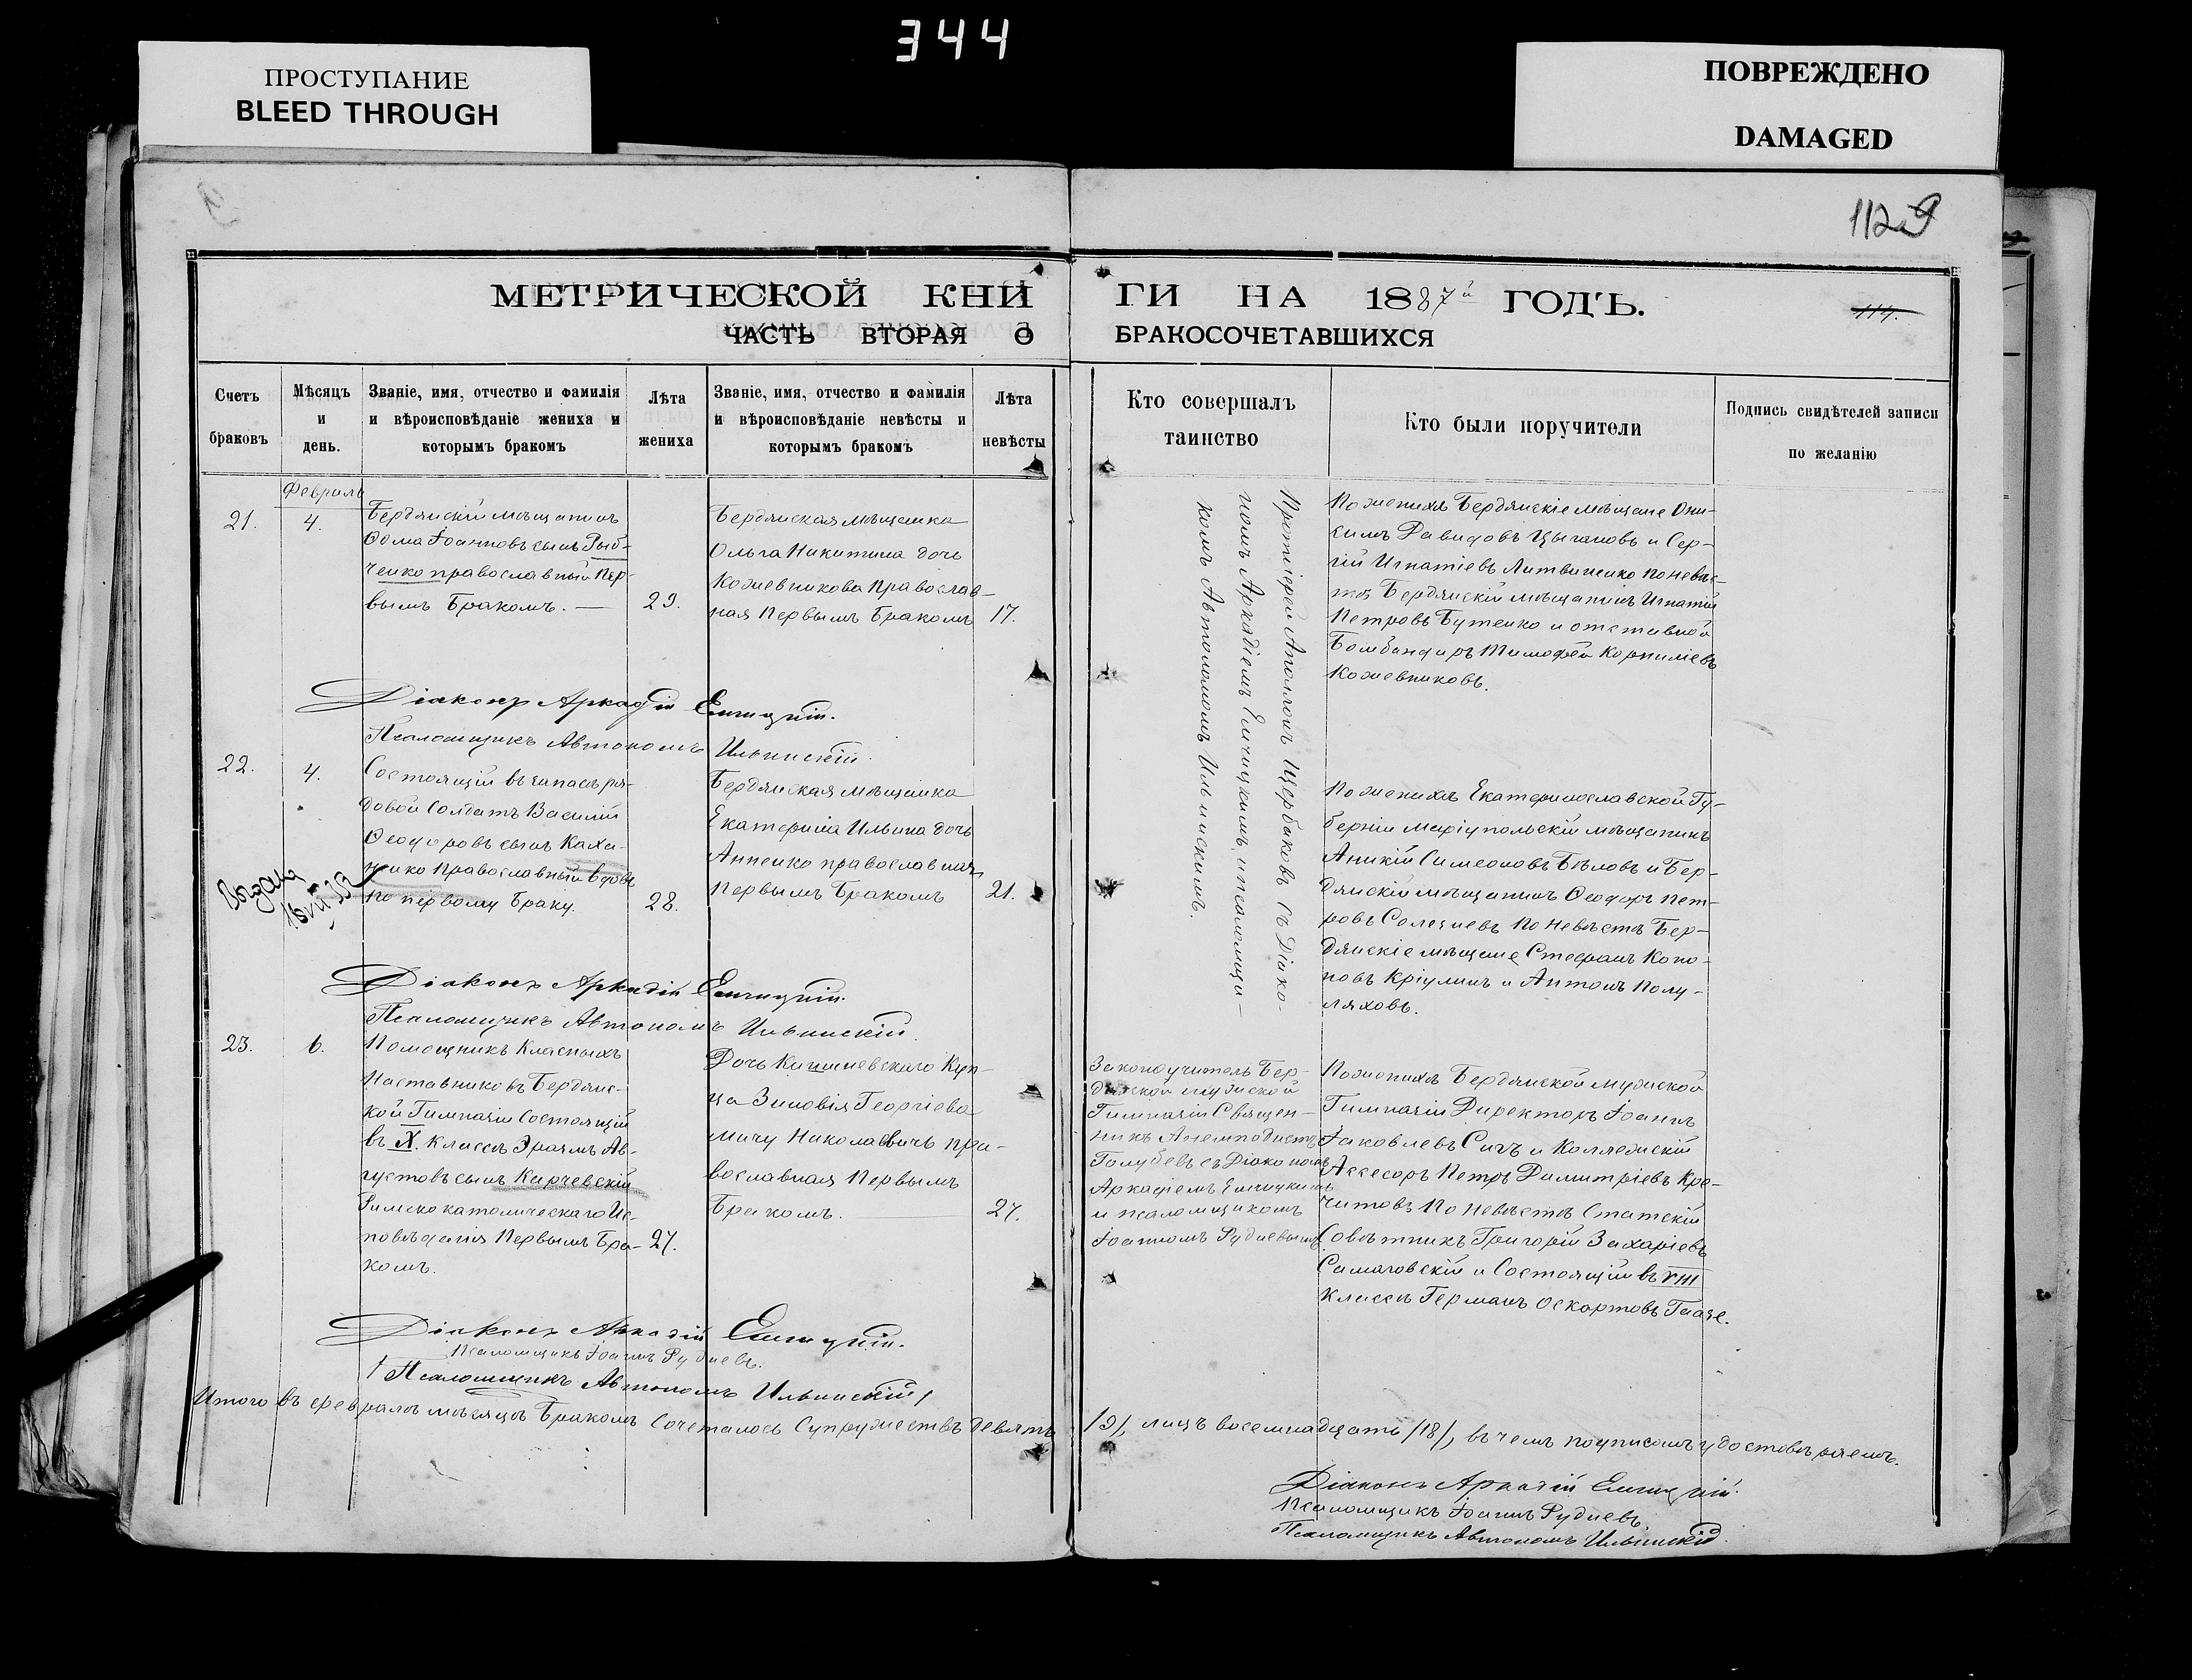 344
ПРОСТУПАНИЕ
BLEED THROUGH
ПОВРЕЖДЕНО
DAMAGED
112
МЕТРИЧЕСКОЙ КНИ
ГИ НА 1887й ГОДЪ.
114.
ЧАСТЬ ВТОРАЯ О
БРАКОСОЧЕТАВШИХСЯ
Счетъ
браковъ
Мѣсяцъ
и
день.
Званіе, имя, отчество и фамилія
и вѣроисповѣданіе жениха и
которымъ бракомъ
Лѣта
жениха
Званіе, имя, отчество и фамилія
и вѣроисповѣданіе невѣсты и
которымъ бракомъ
Лѣта
невѣсты
Кто совершалъ
таинство
Кто были поручители
Подпись свидѣтелей записи
по желанію
Февраль
21.
4.
Бердянскій мѣщанинъ
Ѳома Іоанновъ сынъ Рыб-
ченко православный Пер-
вымъ Бракомъ. —
29.
Бердянская мѣщанка
Ольга Никитина дочь
Кожевникова Православ-
ная Первымъ Бракомъ
17.
Протоіерей Аполлонъ Щербаковъ съ Діако-
номъ Аркадіемъ Елчицкимъ и псаломщи-
комъ Автономомъ Ильинскимъ.
По женихѣ Бердянскіе мѣщане Они-
симъ Давидовъ Цыгановъ и Сер-
гій Игнатіевъ Литвиненко по невѣс-
тѣ Бердянскій мѣщанинъ Игнатій
Петровъ Бутенко и отставной
Бомбандиръ Тимофей Корниліевъ
Кожевниковъ.
Діаконъ Аркадій Елчицкій.
Псаломщикъ Автономъ Ильинскій.
22.
4.
Состоящій въ запасѣ ря-
довой Солдатъ Василій
Ѳеодоровъ сынъ Каха-
ненко Православный вдовъ
по первому Браку.
28.
Бердянская мѣщанка
Екатерина Ильина дочь
Анненко православная
Первымъ Бракомъ
21.
По женихѣ Екатеринославской Гу-
берніи Маріупольскій мѣщанинъ
Аникій Симеоновъ Бѣловъ и Бер-
дянскій мѣщанинъ Ѳеодоръ Пет-
ровъ По Невѣстѣ Бер-
дянскіе мѣщане Стефанъ Коно-
новъ Кріулинъ и Антонъ Полу-
ляховъ.
Выдана
Діаконъ Аркадій Елчицкій.
Псаломщикъ Автономъ Ильинскій.
23.
6.
Помощникъ Класныхъ
Наставниковъ Бердянс-
кой Гимназіи Состоящій
въ X. классѣ Эразмъ Ав-
густовъ сынъ Карчевскій
Римско католическаго Ис-
повѣданія Первымъ Бра-
комъ.
27.
Дочь Кишиневскаго Куп-
ца Зиновія Георгіева
Мичу Николаевичъ пра-
вославная Первымъ
Бракомъ.
27.
Законоучитель Бер-
дянской мужской
Гимназіи Священ-
никъ Анемподистъ
Голубевъ съ Діакономъ
Аркадіемъ Елчицкимъ
и псаломщикомъ
Іоанномъ Рудневымъ
По женихѣ Бердянской мужской
Гимназіи Директоръ Іоаннъ
Іаковлевъ Сичъ и Коллежскій
Ассесоръ Петръ Димитріевъ Кре-
читовъ По Невѣстѣ Статскій
Совѣтникъ Григорій Захаріевъ
Самаговскій и Состоящій въ VIII
классѣ Германъ Оскаровъ
Діаконъ Аркадій Елчицкій.
Псаломщикъ Іоаннъ Рудневъ.
/ Псаломщикъ Автономъ Ильинскій /
Итого въ февралѣ мѣсяцѣ Бракомъ Сочеталось Супружествъ девять /9/, лицъ восемнадцать /18/, въ чемъ подписомъ удостовѣряемъ.
Діаконъ Аркадій Елчицкій.
Псаломщикъ Іоаннъ Рудневъ.
Псаломщикъ Автономъ Ильинскій.